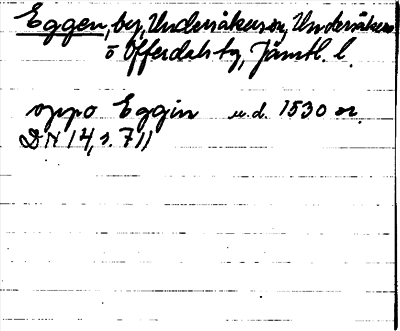 Eggen, by, Undersåkers sn, Undersåkers
o Offerdals tg, Jämtl. l.
oppo Eggin u.d. 1530 or.
DN 14, s. 711